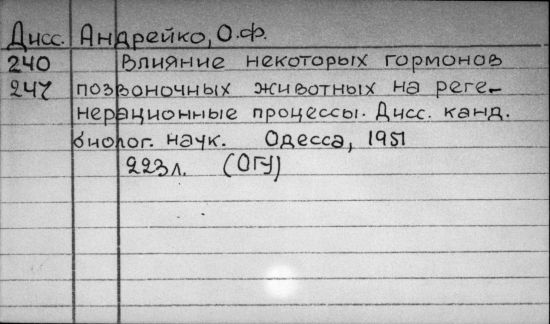 Дисс. Андрейко, О.Ф.
240 Влияние некоторых гормонов
247 позвоночных животных на реге-
нерационные процессы. Дисс. канд.
биолог. наук. Одесса, 1951
223 л. (ОГУ)